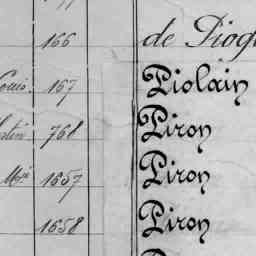 166 de Piog
167 Piolain
768 Piron
1657 Piron
1658 Piron